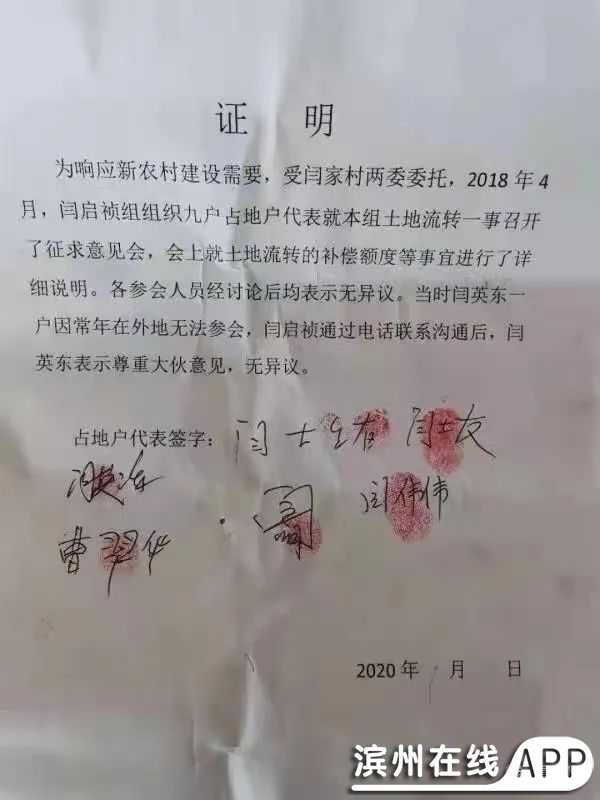 证 明
为响应新农村建设需要，受闫家村两委委托，2018 年 4
月，闫启祯组组织九户占地户代表就本组土地流转一事召开
了征求意见会，会上就土地流转的补偿额度等事宜进行了详
细说明。各参会人员经讨论后均表示无异议。当时闫英东一
户因常年在外地无法参会，闫启祯通过电话联系沟通后，闫
英东表示尊重大伙意见，无异议。
占地户代表签字：闫士 闫士友
闫伟伟
曹翠华
2020 年 月 日
滨州在线 APP